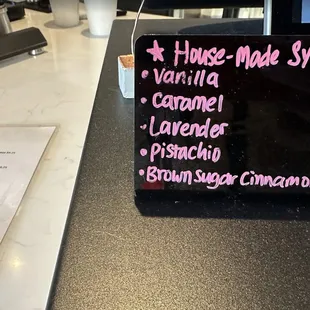 ★ House-Made Sy
• Vanilla
• Caramel
• Lavender
• Pistachio
• Brown Sugar Cinnamo